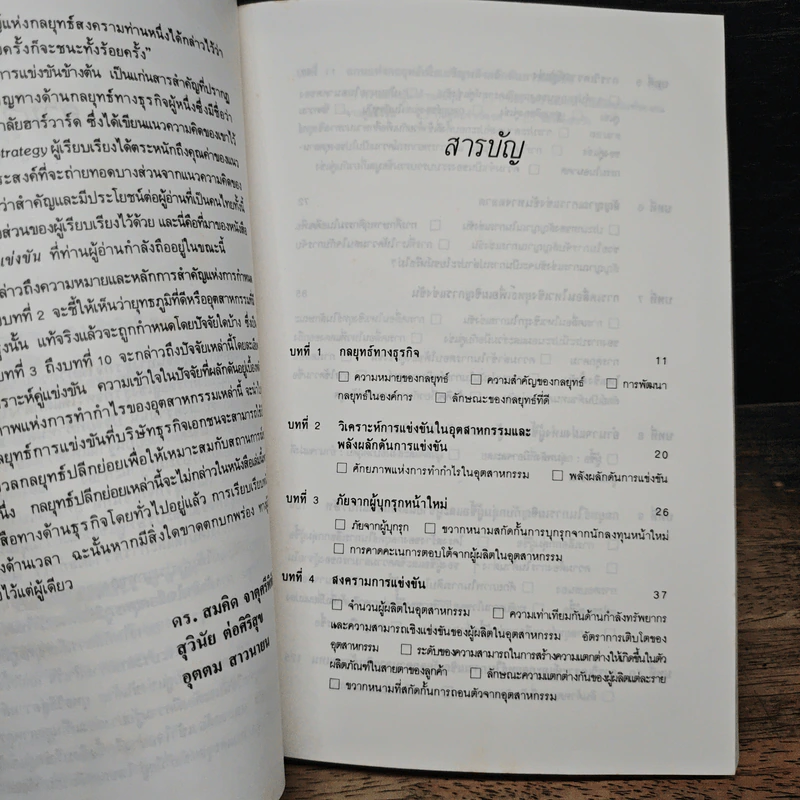 ผู้แห่งกลยุทธ์สงครามท่านหนึ่งได้กล่าวไว้ว่า
ยครั้งก็จะชนะทั้งร้อยครั้ง”
การแข่งขันข้างต้น เป็นแก่นสารสำคัญที่ปรากฏ
ญทางด้านกลยุทธ์ทางธุรกิจผู้หนึ่งซึ่งมีชื่อว่า
าลัยฮาร์วาร์ด ซึ่งได้เขียนแนวความคิดของเขาไว้
Strategy ผู้เรียบเรียงได้ตระหนักถึงคุณค่าของแนว
ระสงค์ที่จะถ่ายทอดบางส่วนจากแนวความคิดของ
ว่าสำคัญและมีประโยชน์ต่อผู้อ่านที่เป็นคนไทยทั้งนี้
ยส่วนของผู้เรียบเรียงไว้ด้วย และนี่คือที่มาของหนังสือ
แข่งขัน ที่ท่านผู้อ่านกำลังถืออยู่ในขณะนี้
ล่าวถึงความหมายและหลักการสำคัญแห่งการกำหนด
งบทที่ 2 จะชี้ให้เห็นว่ายุทธภูมิที่ดีหรืออุตสาหกรรมที่มี
สูงนั้น แท้จริงแล้วจะถูกกำหนดโดยปัจจัยใดบ้าง ซึ่งใน
ทที่ 3 ถึงบทที่ 10 จะกล่าวถึงปัจจัยเหล่านี้โดยละเอียด
คราะห์คู่แข่งขัน ความเข้าใจในปัจจัยที่ผลักดันอยู่เบื้องหลัง
ภาพแห่งการทำกำไรของอุตสาหกรรมเหล่านี้ จะนำไป
ลยุทธ์การแข่งขันที่บริษัทธุรกิจเอกชนจะสามารถใช้
วลกลยุทธ์ปลีกย่อยเพื่อให้เหมาะสมกับสถานการณ์
นึ่ง กลยุทธ์ปลีกย่อยเหล่านี้จะไม่กล่าวในหนังสือเล่มนี้
สือทางด้านธุรกิจโดยทั่วไปอยู่แล้ว การเรียบเรียง
งด้านเวลา ฉะนั้นหากมีสิ่งใดขาดตกบกพร่อง
ไว้แต่ผู้เดียว
ดร. สมคิด จาตุศรีพิทักษ์
สุวินัย ต่อศิริสุข
อุตตม สาวนายน
สารบัญ
บทที่ 1 กลยุทธ์ทางธุรกิจ 11
☐ ความหมายของกลยุทธ์ ☐ ความสำคัญของกลยุทธ์ ☐ การพัฒนา
กลยุทธ์ในองค์การ ☐ ลักษณะของกลยุทธ์ที่ดี
บทที่ 2 วิเคราะห์การแข่งขันในอุตสาหกรรมและ
พลังผลักดันการแข่งขัน 20
☐ ศักยภาพแห่งการทำกำไรในอุตสาหกรรม ☐ พลังผลักดันการแข่งขัน
บทที่ 3 ภัยจากผู้บุกรุกหน้าใหม่ 26
☐ ภัยจากผู้บุกรุก ☐ ขวากหนามสกัดกั้นการบุกรุกจากนักลงทุนหน้าใหม่
☐ การคาดคะเนการตอบโต้จากผู้ผลิตในอุตสาหกรรม
บทที่ 4 สงครามการแข่งขัน 37
☐ จำนวนผู้ผลิตในอุตสาหกรรม ☐ ความเท่าเทียมกันด้านกำลังทรัพยากร
และความสามารถเชิงแข่งขันของผู้ผลิตในอุตสาหกรรม อัตราการเติบโตของ
อุตสาหกรรม ☐ ระดับของความสามารถในการสร้างความแตกต่างให้เกิดขึ้นในตัว
ผลิตภัณฑ์ในสายตาของลูกค้า ☐ ลักษณะความแตกต่างกันของผู้ผลิตแต่ละราย
☐ ขวากหนามที่สกัดกั้นการถอนตัวจากอุตสาหกรรม